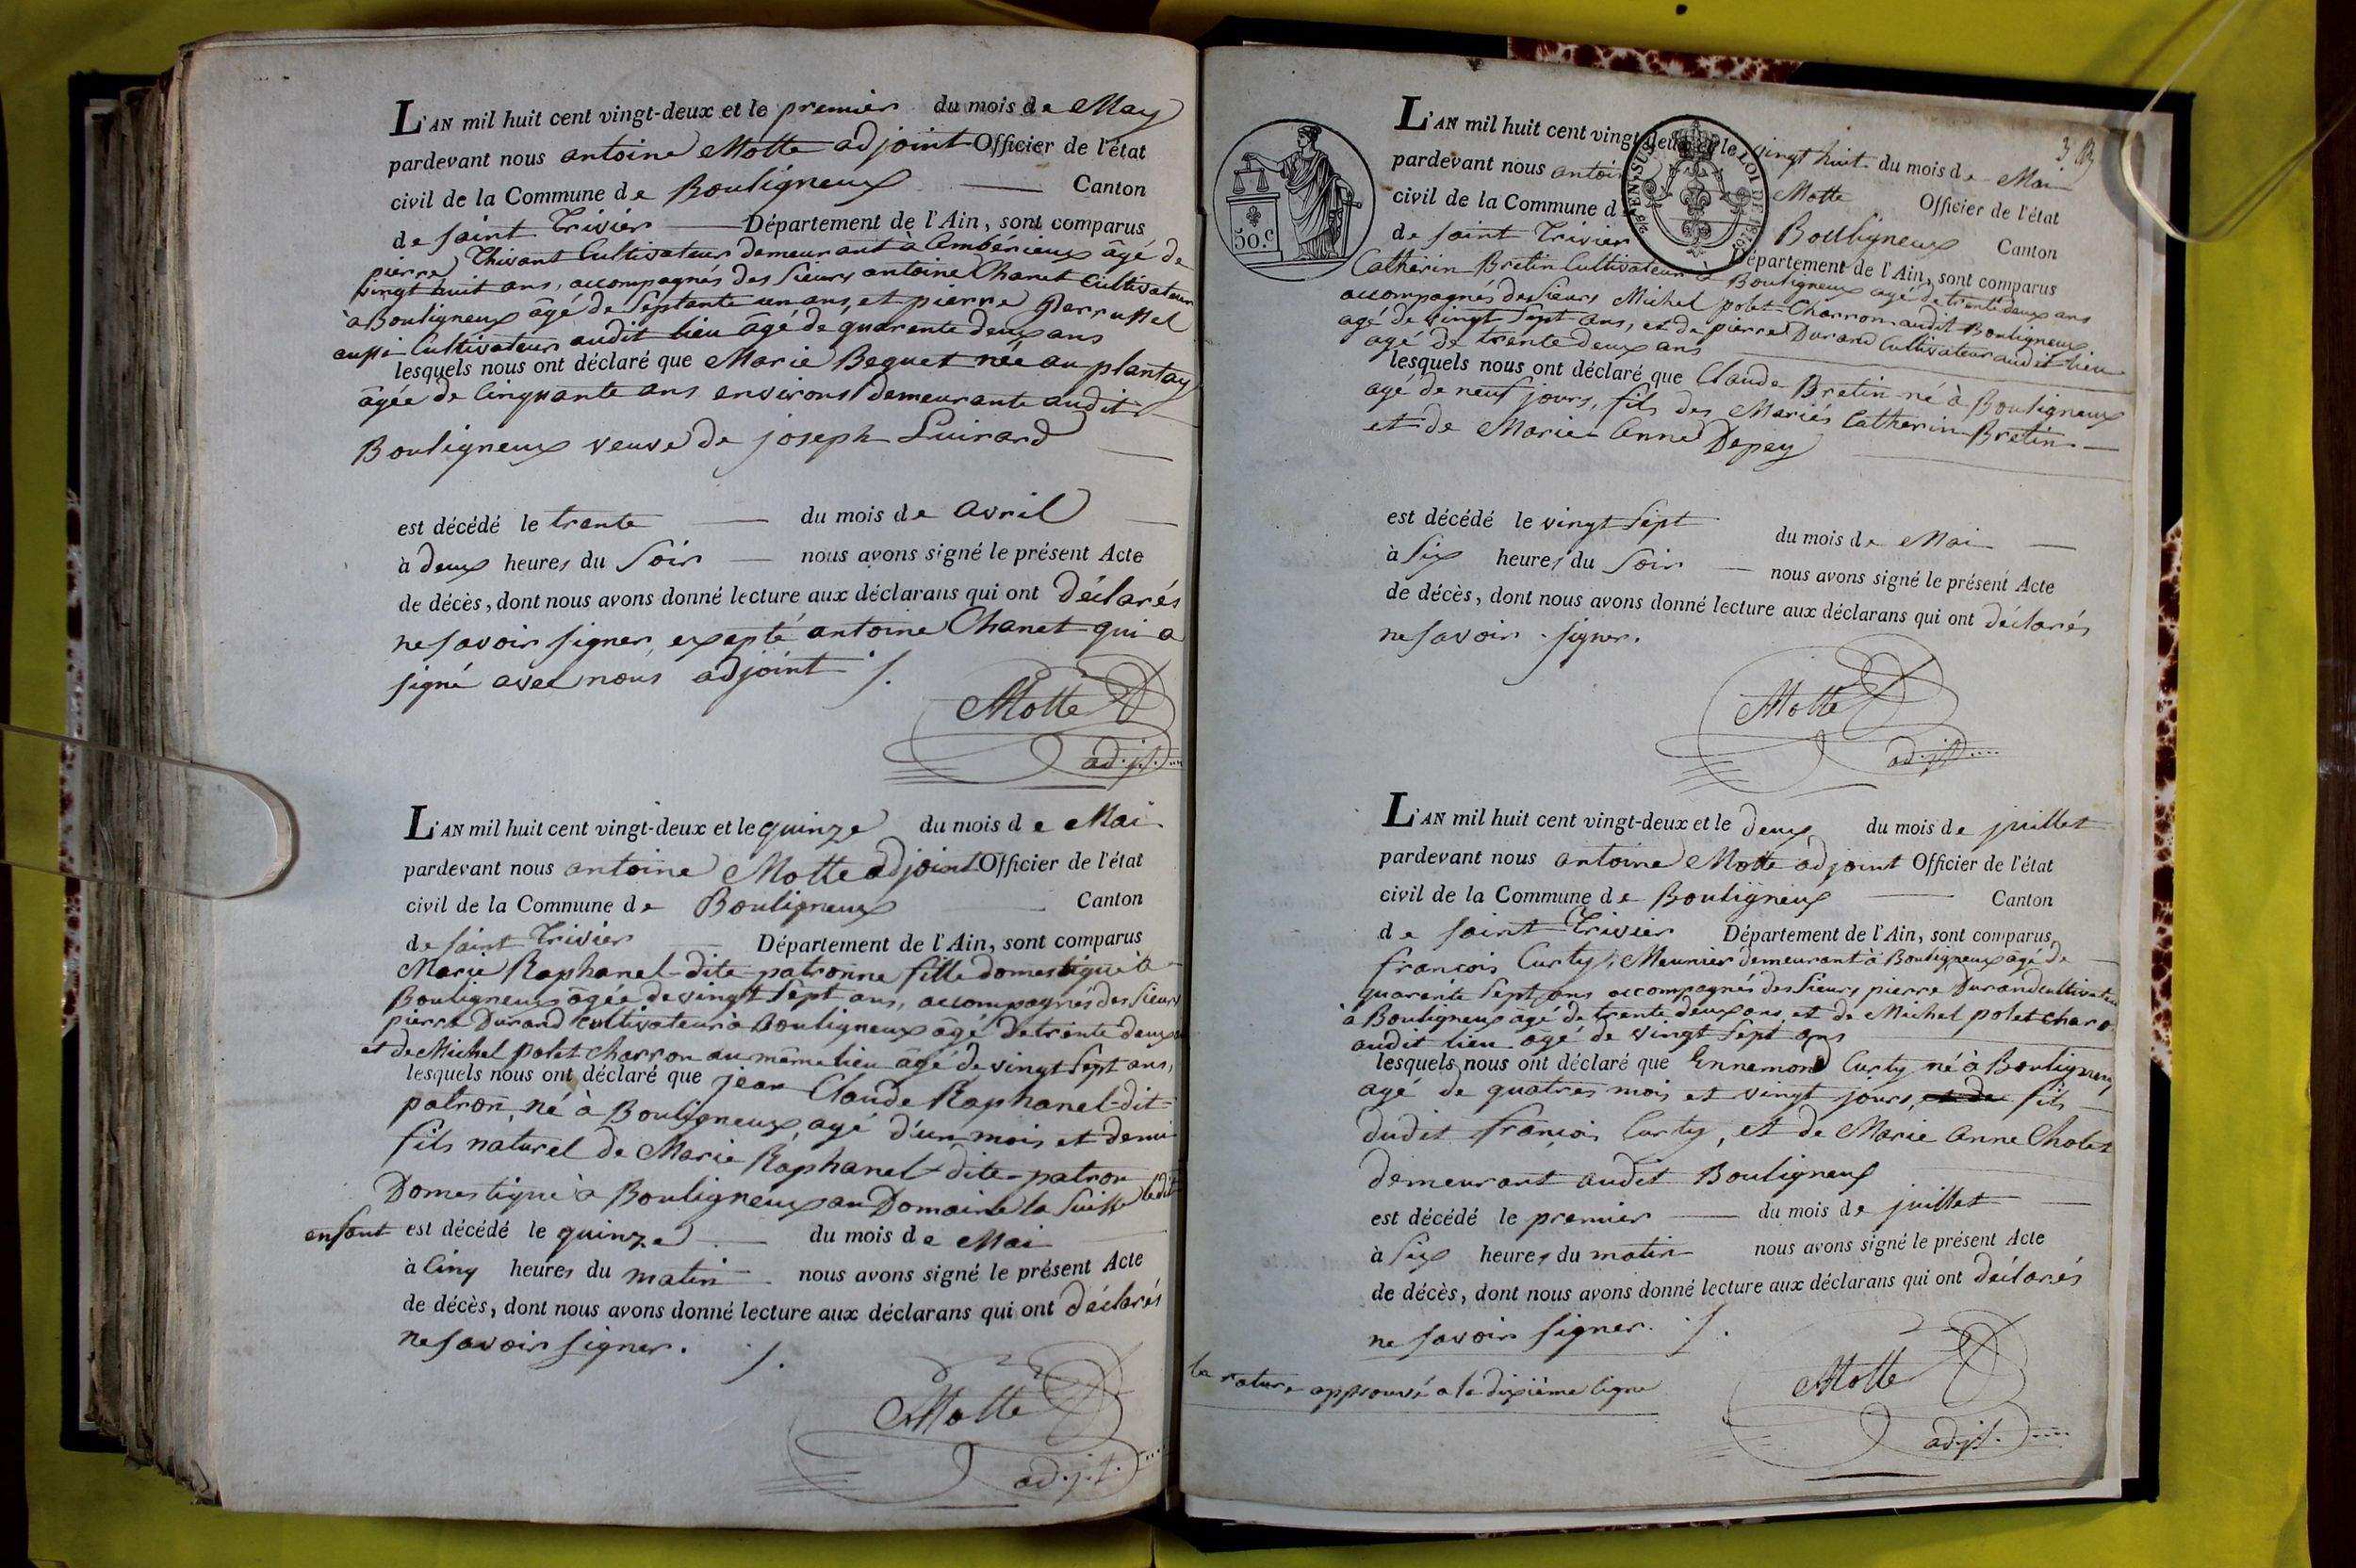 L'AN mil huit cent vingt-deux et le premier du mois de May
pardevant nous antoine Motte adjoint Officier de l'état
civil de la Commune de Bouligneux — Canton
de saint Trivier — Département de l'Ain, sont comparus
pierre Thivant Cultivateur demeurant à Ambérieux âgé de
vingt huit ans, accompagnés des sieurs antoine Chanet Cultivateur
à Bouligneux âgé de Septante un ans, et pierre Perrussel
aussi Cultivateur audit lieu âgé de quarente deux ans
lesquels nous ont déclaré que Marie Beguet née au plantay
âgée de Cinquante ans environs demeurante audit
Bouligneux veuve de joseph Guinard
est décédé le trente — du mois de avril
à deux heures du Soir — nous avons signé le présent Acte
de décès, dont nous avons donné lecture aux déclarans qui ont déclarés
ne savoir signer, exepté antoine Chanet qui a
signé avec nous adjoint ./.
Motte
adj.t
L'AN mil huit cent vingt-deux et le quinze du mois de Mai
pardevant nous antoine Motte adjoint Officier de l'état
civil de la Commune de Bouligneux — Canton
de saint Trivier — Département de l'Ain, sont comparus
Marie Raphanel-dite-patronne fille domestique à
Bouligneux âgée de vingt Sept ans, accompagnés des sieurs
pierre Durand cultivateur à Bouligneux âgé de trente deux ans
et de Michel polet charron au même lieu âgé de vingt Sept ans,
lesquels nous ont déclaré que jean Claude Raphanel-dit-
patron, né à Bouligneux agé d'un mois et demi
fils naturel de Marie Raphanel-dite-patron
Domestique à Bouligneux au Domaine la Suisse ledit
enfant est décédé le quinze — du mois de Mai
à Cinq heures du matin — nous avons signé le présent Acte
de décès, dont nous avons donné lecture aux déclarans qui ont déclarés
ne savoir signer. ./.
Motte
adj.t
3
L'AN mil huit cent vingt-deux et le vingt huit du mois de Mai
pardevant nous antoi Motte Officier de l'état
civil de la Commune d Bouligneux Canton
de saint Trivier Département de l'Ain, sont comparus
50.c
EN SUS LOI DE 1816
Catherin Bretin Cultivateur à Bouligneux agé de trente deux ans
accompagnés des sieurs Michel polet Charron audit Bouligneux
agé de vingt Sept ans, et de pierre Durand Cultivateur audit lieu
agé de trente deux ans
lesquels nous ont déclaré que Claude Bretin né à Bouligneux
agé de neuf jours, fils des Mariés Catherin Bretin —
et de Marie Anne Depey
est décédé le vingt Sept du mois de Mai —
à Six heures du Soir — nous avons signé le présent Acte
de décès, dont nous avons donné lecture aux déclarans qui ont déclarés
ne savoir signer.
Motte
adj.t
L'AN mil huit cent vingt-deux et le deux du mois de juillet
pardevant nous antoine Motte adjoint Officier de l'état
civil de la Commune de Bouligneux — Canton
de saint Trivier Département de l'Ain, sont comparus
françois Curty, Meunier demeurant à Bouligneux âgé de
quarente Sept ans accompagnés des sieurs pierre Durand cultivateur
à Bouligneux âgé de trente deux ans, et de Michel polet charon
audit lieu âgé de vingt Sept ans
lesquels nous ont déclaré que Ennemond Curty né à Bouligneux
agé de quatres mois et vingt jours, et de fils
dudit françois Curty, et de Marie Anne Cholet
demeurant audit Bouligneux
est décédé le premier — du mois de juillet —
à Six heures du matin nous avons signé le présent Acte
de décès, dont nous avons donné lecture aux déclarans qui ont déclarés
ne savoir signer. ./.
la rature approuvé a la dixième ligne
Motte
adj.t